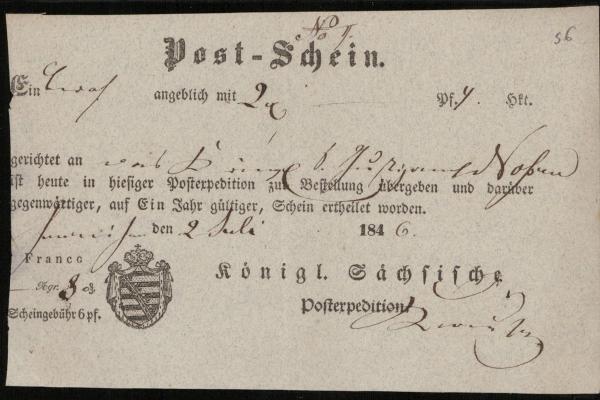 56
Post-Schein.
Ein angeblich mit 2 Pf. Hkt.
gerichtet an das Nossen
ist heute in hiesiger Postexpedition zur Bestellung übergeben und darüber
gegenwärtiger, auf Ein Jahr gültiger, Schein ertheilet worden.
den 2 Juli 1846.
Franco
Ngr. 8 Königl. Sächsische
Scheingebühr 6 pf. Postexpedition